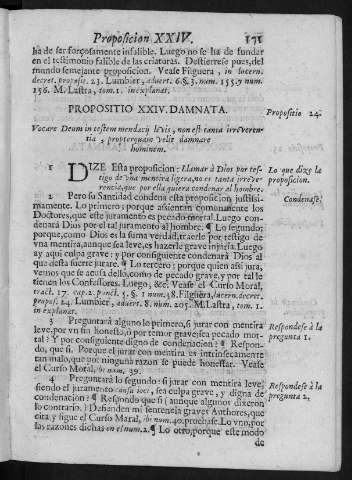 Proposicion XXIV. 171
ha de ser forçosamente infalible. Luego no se ha de fundar
en el testimonio falible de las criaturas. Destierrese pues, del
mundo semejante proposicion. Vease Filguera, in lucern.
decret. proposit. 23. Lumbier, advert. 6. §. 3. num. 155. y num.
156. M. Lastra, tom. 1. in explanat.
PROPOSITIO XXIV. DAMNATA.
Propositio 24.
Vocare Deum in testem mendacij levis, non est tanta irreveren-
tia, propter quam velit damnare
hominem.
1 DIZE Esta proposicion: Llamar à Dios por tes-
tigo de vna mentira ligera, no es tanta irreve-
rencia, que por ella quiera condenar al hombre.
Lo que dize la
proposicion.
2 Pero su Santidad condena esta proposicion justissi-
mamente. Lo primero; porque assientan comunmente los
Doctores, que este juramento es pecado mortal. Luego con-
denarà Dius por el tal juramento al hombre. ¶ Lo segundo;
porque, como Dios es la suma verdad, traerle por testigo de
vna mentira, aunque sea leve, es hazerle grave injuria. Luego
ay aqui culpa grave; y por consiguiente condenarà Dios al
que desta suerte jurare. ¶ Lo tercero; porque quien assi jura,
vemos que se acusa dello, como de pecado grave, y por tal le
tienen los Confessores. Luego, &c. Vease el Curso Moral,
tract. 17. cap. 2. punct. 5. §. 1. num. 38. Filguera, lucern. decret.
proposit. 24. Lumbier, advert. 8. num. 205. M. Lastra, tom. 1.
in explanat.
Condenase.
3 Preguntarà alguno lo primero, si jurar con mentira
leve, por vn fin honesto, ò por temor grave, sea pecado mor-
tal? Y por consiguiente digno de condenacion? ¶ Respon-
do, que si. Porque el jurar con mentira es intrinsecamente
tan malo, que por ninguna razon se puede honestar. Vease
el Curso Moral, ibi num. 39.
Respondese à la
pregunta 1.
4 Preguntarà lo segundo: si jurar con mentira leve,
siendo el juramento causa loci, sea culpa grave, y digna de
condenacion? ¶ Respondo que si (aunque algunos dizen
lo contrario.) Defienden mi sentencia graves Authores, que
cita, y sigue el Curso Moral, ibi num. 40. pruebase. Lo vno, por
las razones dichas en el num. 2. ¶ Lo otro, porque este modo
Respondese à la
pregunta 2.
de